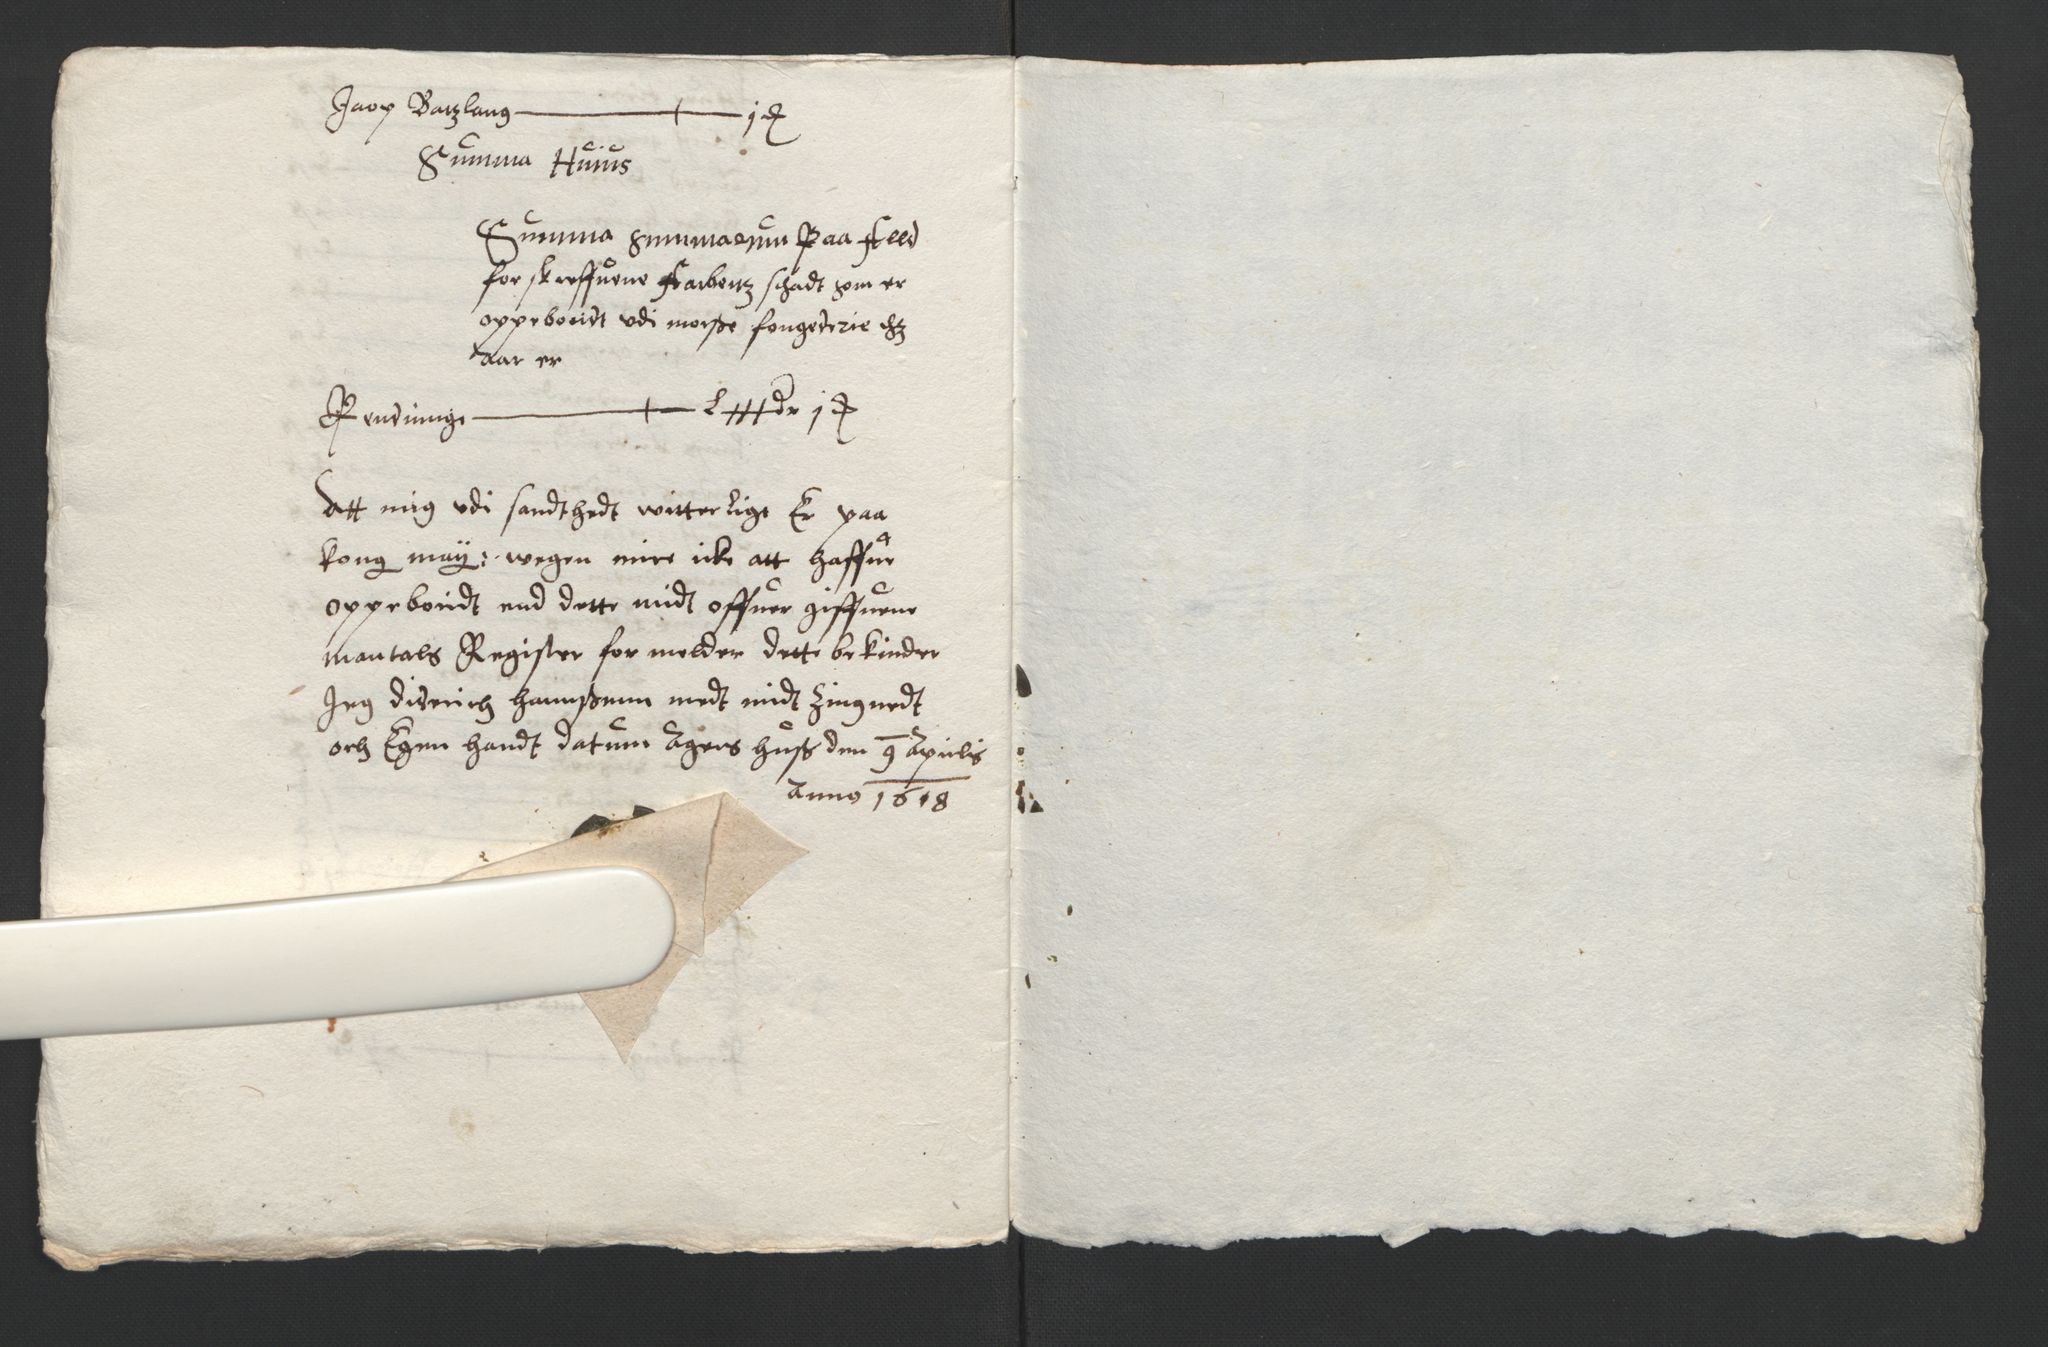 Jaop Batzlang — 1 ₰
Summa Huius
Summa summarum Paa All
for skreffuene Arbeitz schadt som er
oppebordt vdi morsse fougederie
aar er
Pendinnge — dr 1 ₰
Att mig vdi sandthedt witterligt Er paa
kong may: wegen mire icke att haffue
oppebordt end dette midt offuer giffuene
mantals Register for melder dette bekinder
Jeg diderich hannssenn medt midt Zingnedt
och Egen handt datum Agers huss den 9 Aprilis
Anno 1618